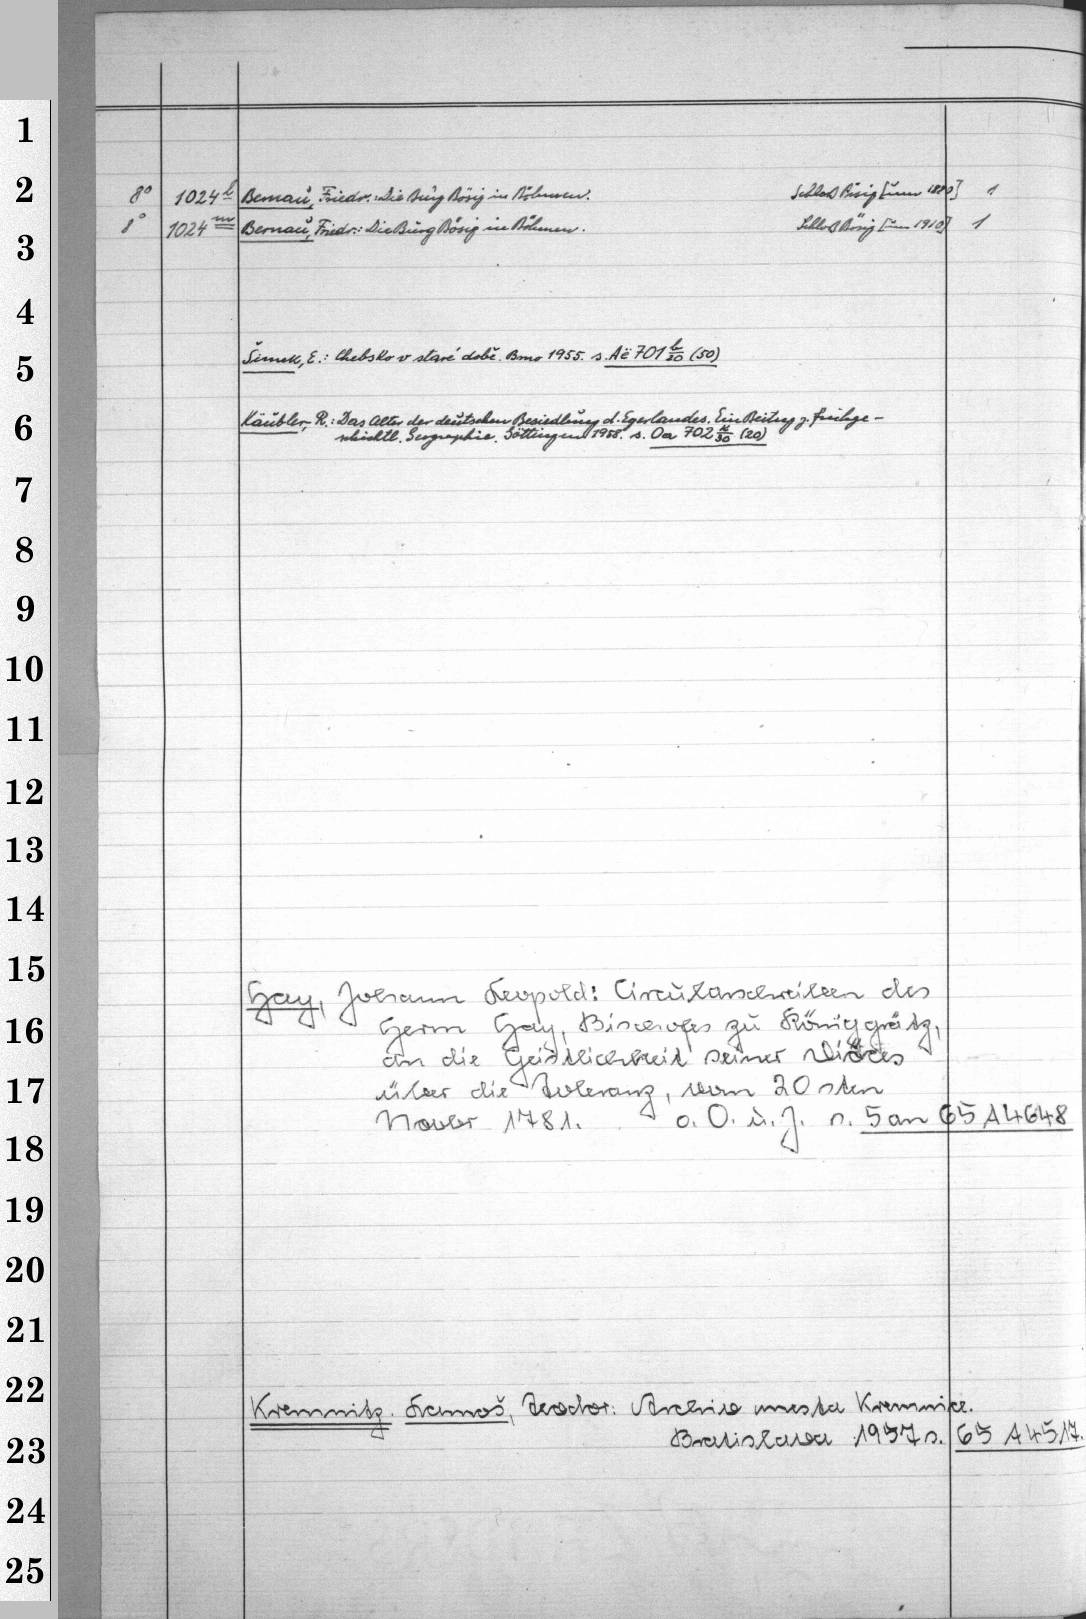 1
2
8° 1024 l Bernau, Friedr.: Die Burg Bösig in Böhmen. Schloß Bösig [um 1880] 1
8° 1024 m Bernau, Friedr.: Die Burg Bösig in Böhmen. Schloß Bösig [um 1910] 1
3
4
Šimek, E.: Chebsko v staré době. Brno 1955. s. Aë 701 b/20 (50)
5
Käubler, R.: Das Alter der deutschen Besiedlung d. Egerlandes. Ein Beitrag z. frühge-
6
schichtl. Geographie. Göttingen 1958. s. Oa 702 /30 (20)
7
8
9
10
11
12
13
14
15
Hay, Johann Leopold: Circularschreiben des
16
Herrn Hay, Bischofes zu Königgrätz,
an die Geistlichkeit seiner Diöces
17
über die Toleranz, vom 20sten
Novbr 1781. o. O. u. J. s. 5 an 65 A 4648
18
19
20
21
22
Kremnitz. Lamoš, Teodor: Archív mesta Kremnice.
23
Bratislava 1957 s. 65 A 4517.
24
25